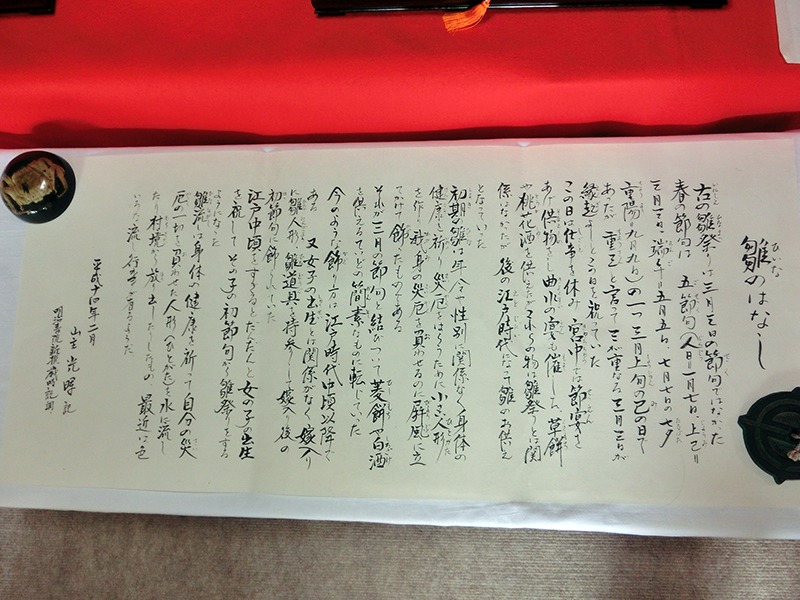 雛のはなし
ひいな
古の雛祭りは三月三日の節句ではなかった
春の節句は 五節句(人日=一月七日、上巳=
三月三日、端午=五月五日、七月七日の七夕
重陽=九月九日)の一つ三月上旬の巳の日で
あたが 重三と言って三が重なる三月三日が
縁起よしとこの日を祝っていた
この日は仕事を休み 宮中では節宴を
あげ供物をし 曲水の宴も催した 草餅
や桃花酒を供えたが これらの物は雛祭りとは関
係はなかたが 後の江戸時代になって雛のお供え
となっていた
初期の雛は年令や性別に関係なく身体の
健康を祈り 災厄をはらうために小さい人形
を作り 我身の災厄を負わせるのに屏風に立
てかけて飾たものである
それが三月の節句と結びついて菱餅や白酒
を供えるていどの簡素なものに転じていた
今のような飾り方は江戸時代中頃以降で
ある 又女子の出生とは関係がなく嫁入り
に雛人形 雛道具を持参して嫁入り後の
初節句に飾られていた
江戸中頃をすぎるとだんだんと女の子の出生
を祝して その子の初節句から雛祭りをする
ようになった
雛流しは身体の健康を祈って自分の災
厄の一切を負わせた人形(ひとがた)を水に流し
たり村境から放出したりしたもの 最近は色
いろな流し行事が有るようだ
平成十四年二月
山主 光暉 記